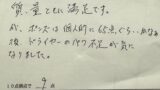 質、量ともに満足です。
が、ポンズは個人的に65点ぐらい…かなぁ
後、ドライヤーのパワー不足が気に
なりました。
10点満点で 9 点